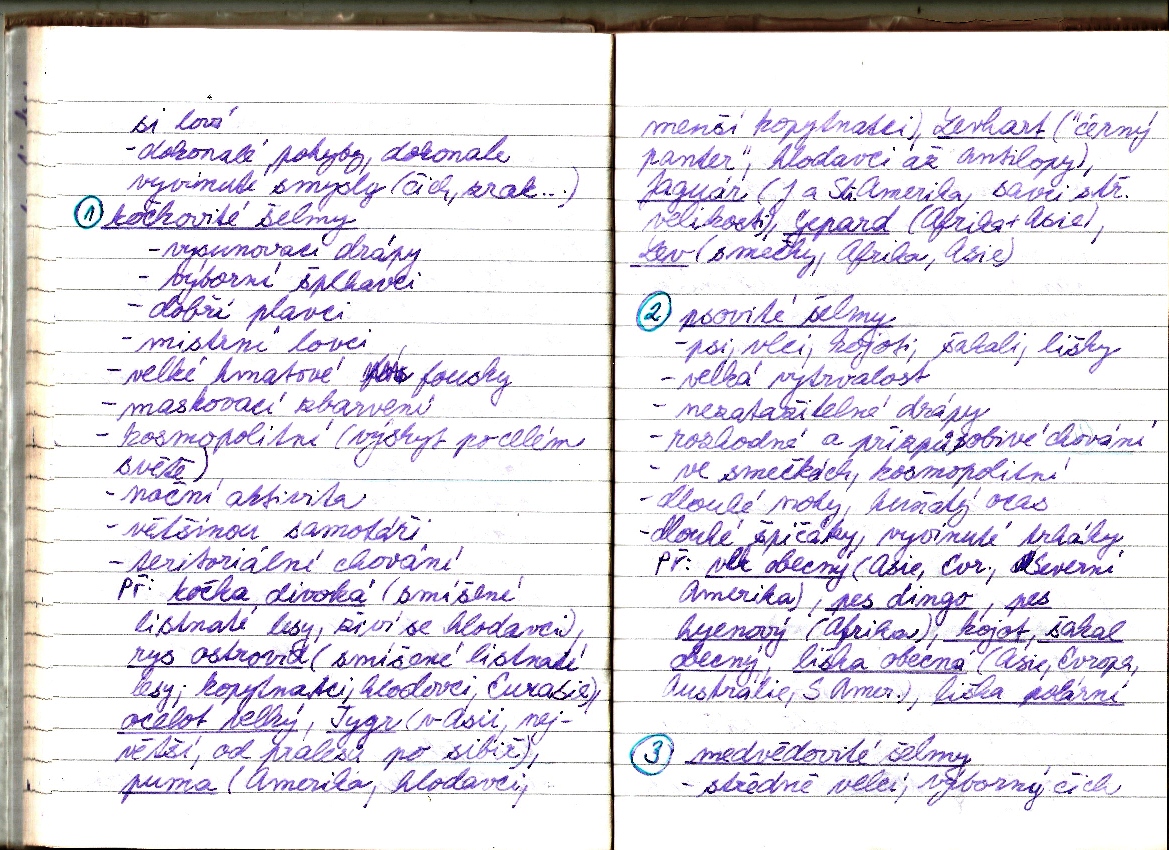 si loví
-dokonalé pohyby, dokonale
vyvinuté smysly (čich, zrak...)
1 kočkovité šelmy
-vysunovací drápy
- výborní šplhavci
- dobří plavci
- mistrní lovci
- velké hmatové fousky
- maskovací zbarvení
- kosmopolitní (výskyt po celém
světě)
- noční aktivita
- většinou samotáři
- teritoriální chování
Př: kočka divoká (smíšené
listnaté lesy, živí se hlodavci),
rys ostrovid (smíšené listnaté
lesy, kopytnatci, hlodavci, Eurasie),
ocelot velký, Tygr (v Asii, nej-
větší, od pralesa po sibiř),
puma (Amerika, hlodavci,
menší kopytnatci), Levhart ("černý
panter", hlodavci až antilopy),
Jaguár (J a Stř. Amerika, savci stř.
velikosti), Gepard (Afrika + Asie),
Lev (smečky, Afrika, Asie)
2 psovité šelmy
-psi, vlci, kojoti, šakali, lišky
- velká vytrvalost
- nezatažitelné drápy
- rozhodné a přizpůsobivé chování
- ve smečkách, kosmopolitní
- dlouhé nohy, huňatý ocas
- dlouhé špičáky, vyvinuté trháky
Př: vlk obecný (Asie, Evr., Severní
Amerika), pes dingo, pes
hyenový (Afrika), kojot, šakal
obecný, liška obecná (Asie, Evropa,
Austrálie, S. Amer.), liška polární
3 medvědovité šelmy
- středně velcí, výborný čich